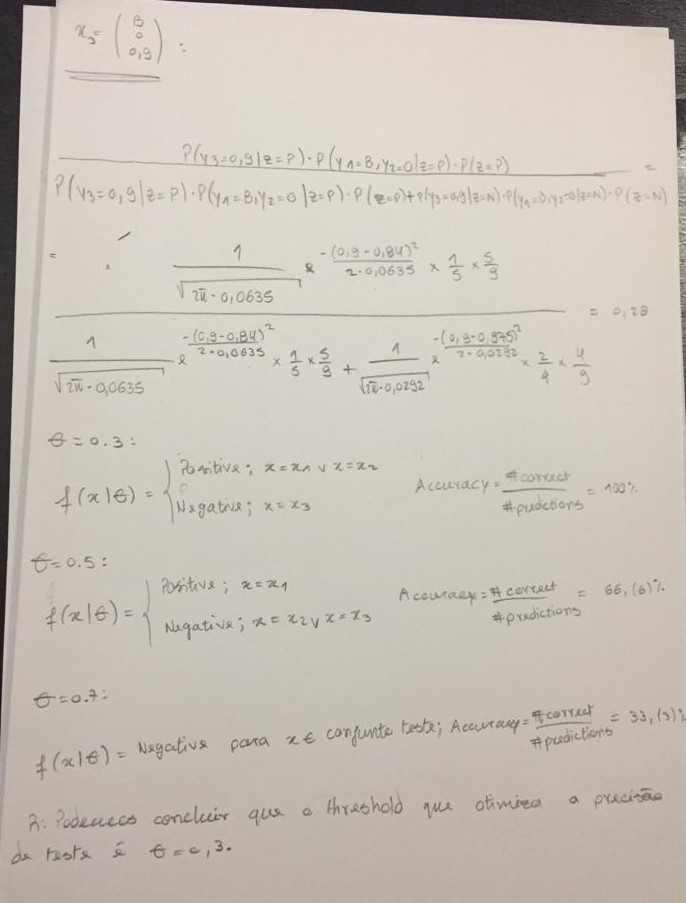 x₃ = (B 0 0,9) :
P(y₃=0,9|z=P)·P(y₁=B,y₂=0|z=P)·P(z=P)
=
P(y₃=0,9|z=P)·P(y₁=B,y₂=0|z=P)·P(z=P)+P(y₃=0,9|z=N)·P(y₁=B,y₂=0|z=N)·P(z=N)
= 1/√(2π·0,0635) e^(-(0,9-0,84)²/(2·0,0635)) × 1/5 × 5/9
= 0,28
1/√(2π·0,0635) e^(-(0,9-0,84)²/(2·0,0635)) × 1/5 × 5/9 + 1/√(2π·0,0292) e^(-(0,9-0,975)²/(2·0,0292)) × 2/4 × 4/9
θ=0.3:
f(x|θ) = { Positive; x=x₁ ∨ x=x₂
Negative; x=x₃
Accuracy = #correct/#predictions = 100%
θ=0.5:
f(x|θ) = { Positive; x=x₁
Negative; x=x₂ ∨ x=x₃
Accuracy = #correct/#predictions = 66,(6)%
θ=0.7:
f(x|θ) = Negative para x ∈ conjunto teste; Accuracy = #correct/#predictions = 33,(3)%
R: Podemos concluir que o threshold que otimiza a precisão
de teste é θ=0,3.